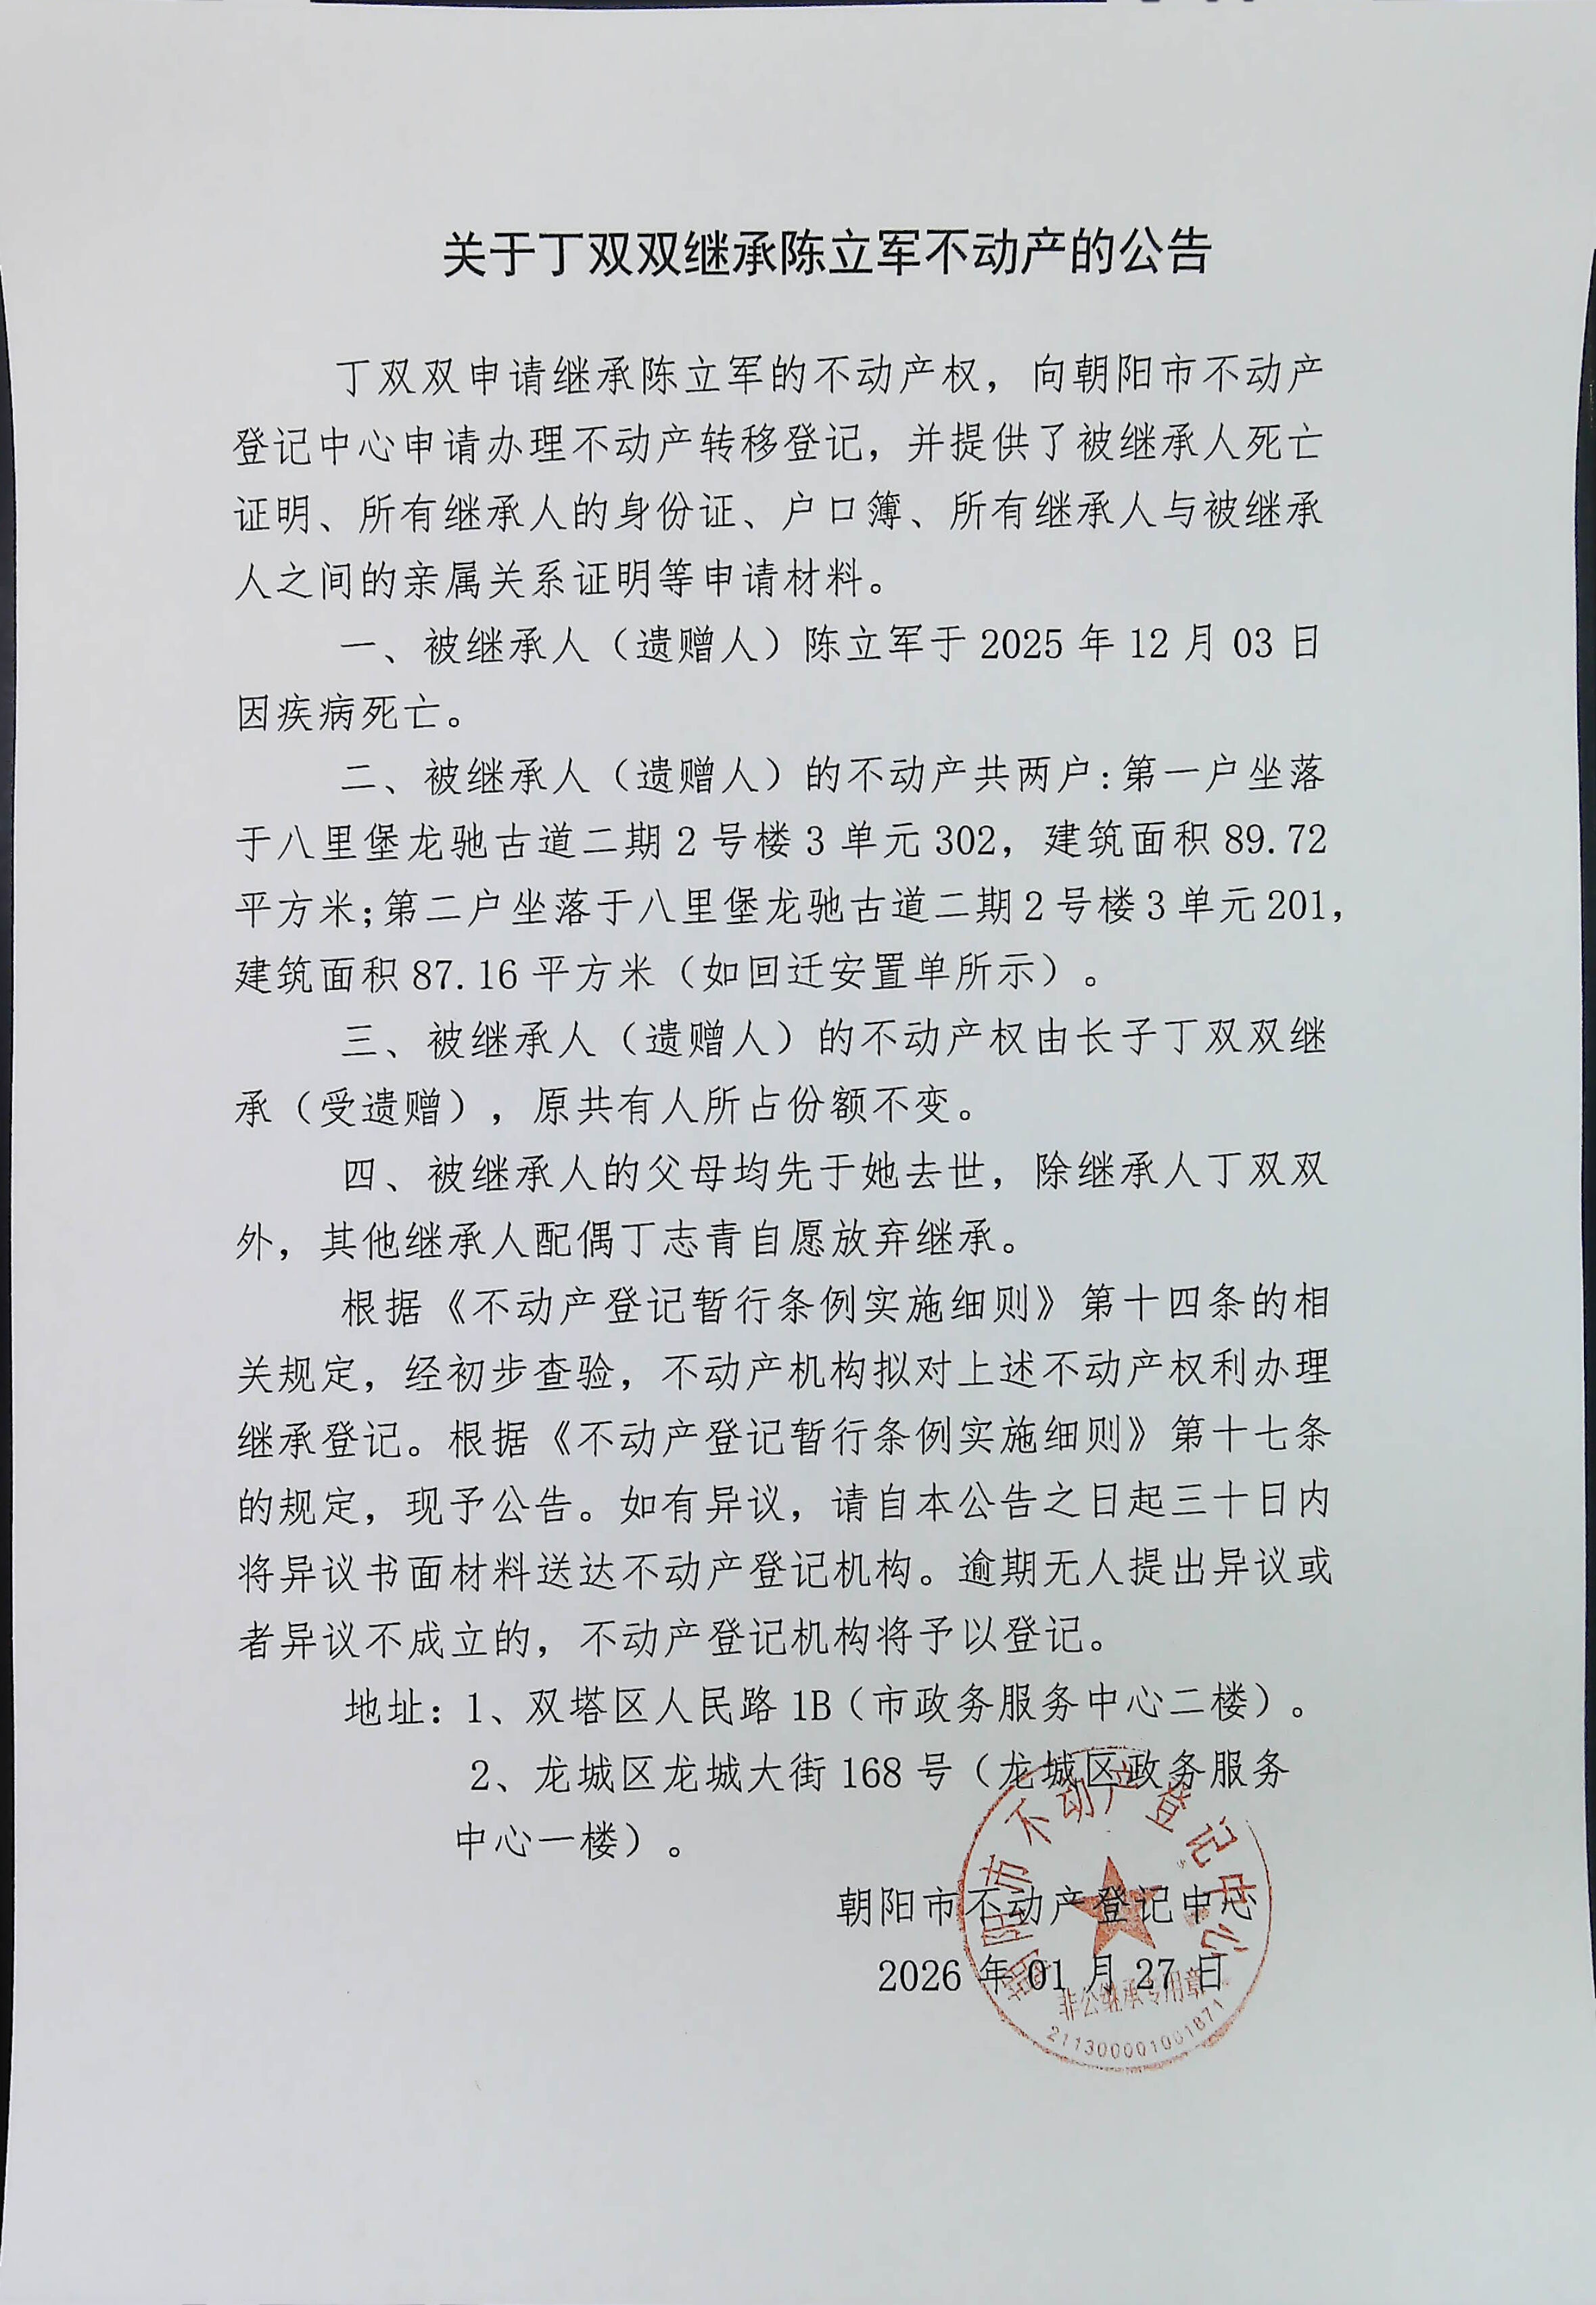 关于丁双双继承陈立军不动产的公告
丁双双申请继承陈立军的不动产权，向朝阳市不动产
登记中心申请办理不动产转移登记，并提供了被继承人死亡
证明、所有继承人的身份证、户口簿、所有继承人与被继承
人之间的亲属关系证明等申请材料。
一、被继承人（遗赠人）陈立军于 2025 年 12 月 03 日
因疾病死亡。
二、被继承人（遗赠人）的不动产共两户：第一户坐落
于八里堡龙驰古道二期 2 号楼 3 单元 302，建筑面积 89.72
平方米；第二户坐落于八里堡龙驰古道二期 2 号楼 3 单元 201，
建筑面积 87.16 平方米（如回迁安置单所示）。
三、被继承人（遗赠人）的不动产权由长子丁双双继
承（受遗赠），原共有人所占份额不变。
四、被继承人的父母均先于她去世，除继承人丁双双
外，其他继承人配偶丁志青自愿放弃继承。
根据《不动产登记暂行条例实施细则》第十四条的相
关规定，经初步查验，不动产机构拟对上述不动产权利办理
继承登记。根据《不动产登记暂行条例实施细则》第十七条
的规定，现予公告。如有异议，请自本公告之日起三十日内
将异议书面材料送达不动产登记机构。逾期无人提出异议或
者异议不成立的，不动产登记机构将予以登记。
地址：1、双塔区人民路 1B（市政务服务中心二楼）。
2、龙城区龙城大街 168 号（龙城区政务服务
中心一楼）。
朝阳市不动产登记中心
2026 年 01 月 27 日
朝阳市不动产登记中心
非公继承专用章
2113000001061871